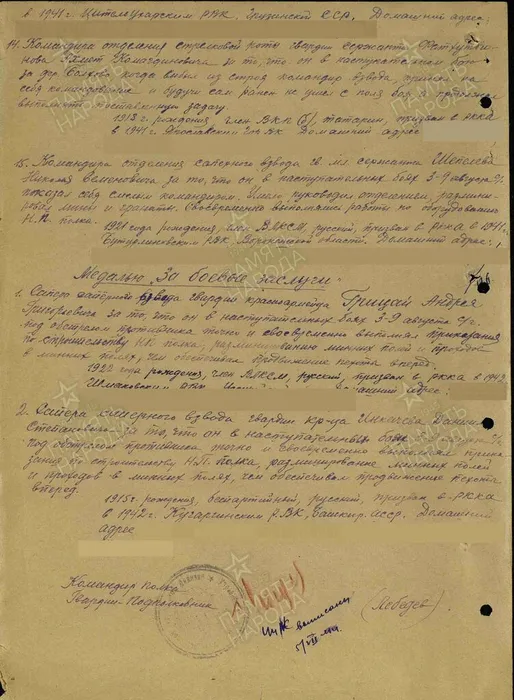 в 1941 г. Цителцкарским РВК, Грузинской ССР. Домашний адрес:
14. Командира отделения стрелковой роты гвардии сержанта
Ахмет за то, что он в наступательном бою
за дер. когда выбыл из строя командир взвода, принял на
себя командование и будучи сам ранен не ушел с поля боя и продолжал
выполнять поставленную задачу.
1913 г. рождения, член ВКП(б), татарин, призван в РККА
в 1941 г. Ярославским РВК Домашний адрес
15. Командира отделения саперного взвода гв. мл. сержанта Шепелева
Николая Семеновича за то, что он в наступательных боях 3-9 августа с/г.
показал себя смелым командиром. Умело руководил отделением, разминировал
мины и Своевременно выполнял работы по оборудованию
Н.П. полка.
1921 года рождения, член ВЛКСМ, русский, призван в РККА в 1941 г.
Бутурлиновским РВК, Воронежской области. Домашний адрес:
Медалью „За боевые заслуги"
1. Сапера саперного взвода гвардии красноармейца Грицай Андрея
Григорьевича за то, что он в наступательных боях 3-9 августа с/г.
под обстрелом противника точно и своевременно выполнял приказания
по строительству НП полка, разминированию минных полей и проходов
в минных полях, чем обеспечил продвижение пехоты вперед.
1922 года рождения, член ВЛКСМ, русский, призван в РККА в 1942
РВК Домашний адрес.
2. Сапера саперного взвода гвардии кр-ца Даниила
Степановича за то, что он в наступательных боях с/г
под обстрелом противника точно и своевременно выполнял приказание
по строительству Н.П. полка, разминирование минных полей
и проходов в минных полях, чем обеспечил продвижение пехоты
вперед.
1915 г. рождения, беспартийный, русский, призван в РККА
в 1942 г. Кугарчинским РВК, Башкир. АССР. Домашний
адрес
Командир полка
Гвардии-Подполковник
(Лебедев)
выписаны
ПАМЯТЬ НАРОДА